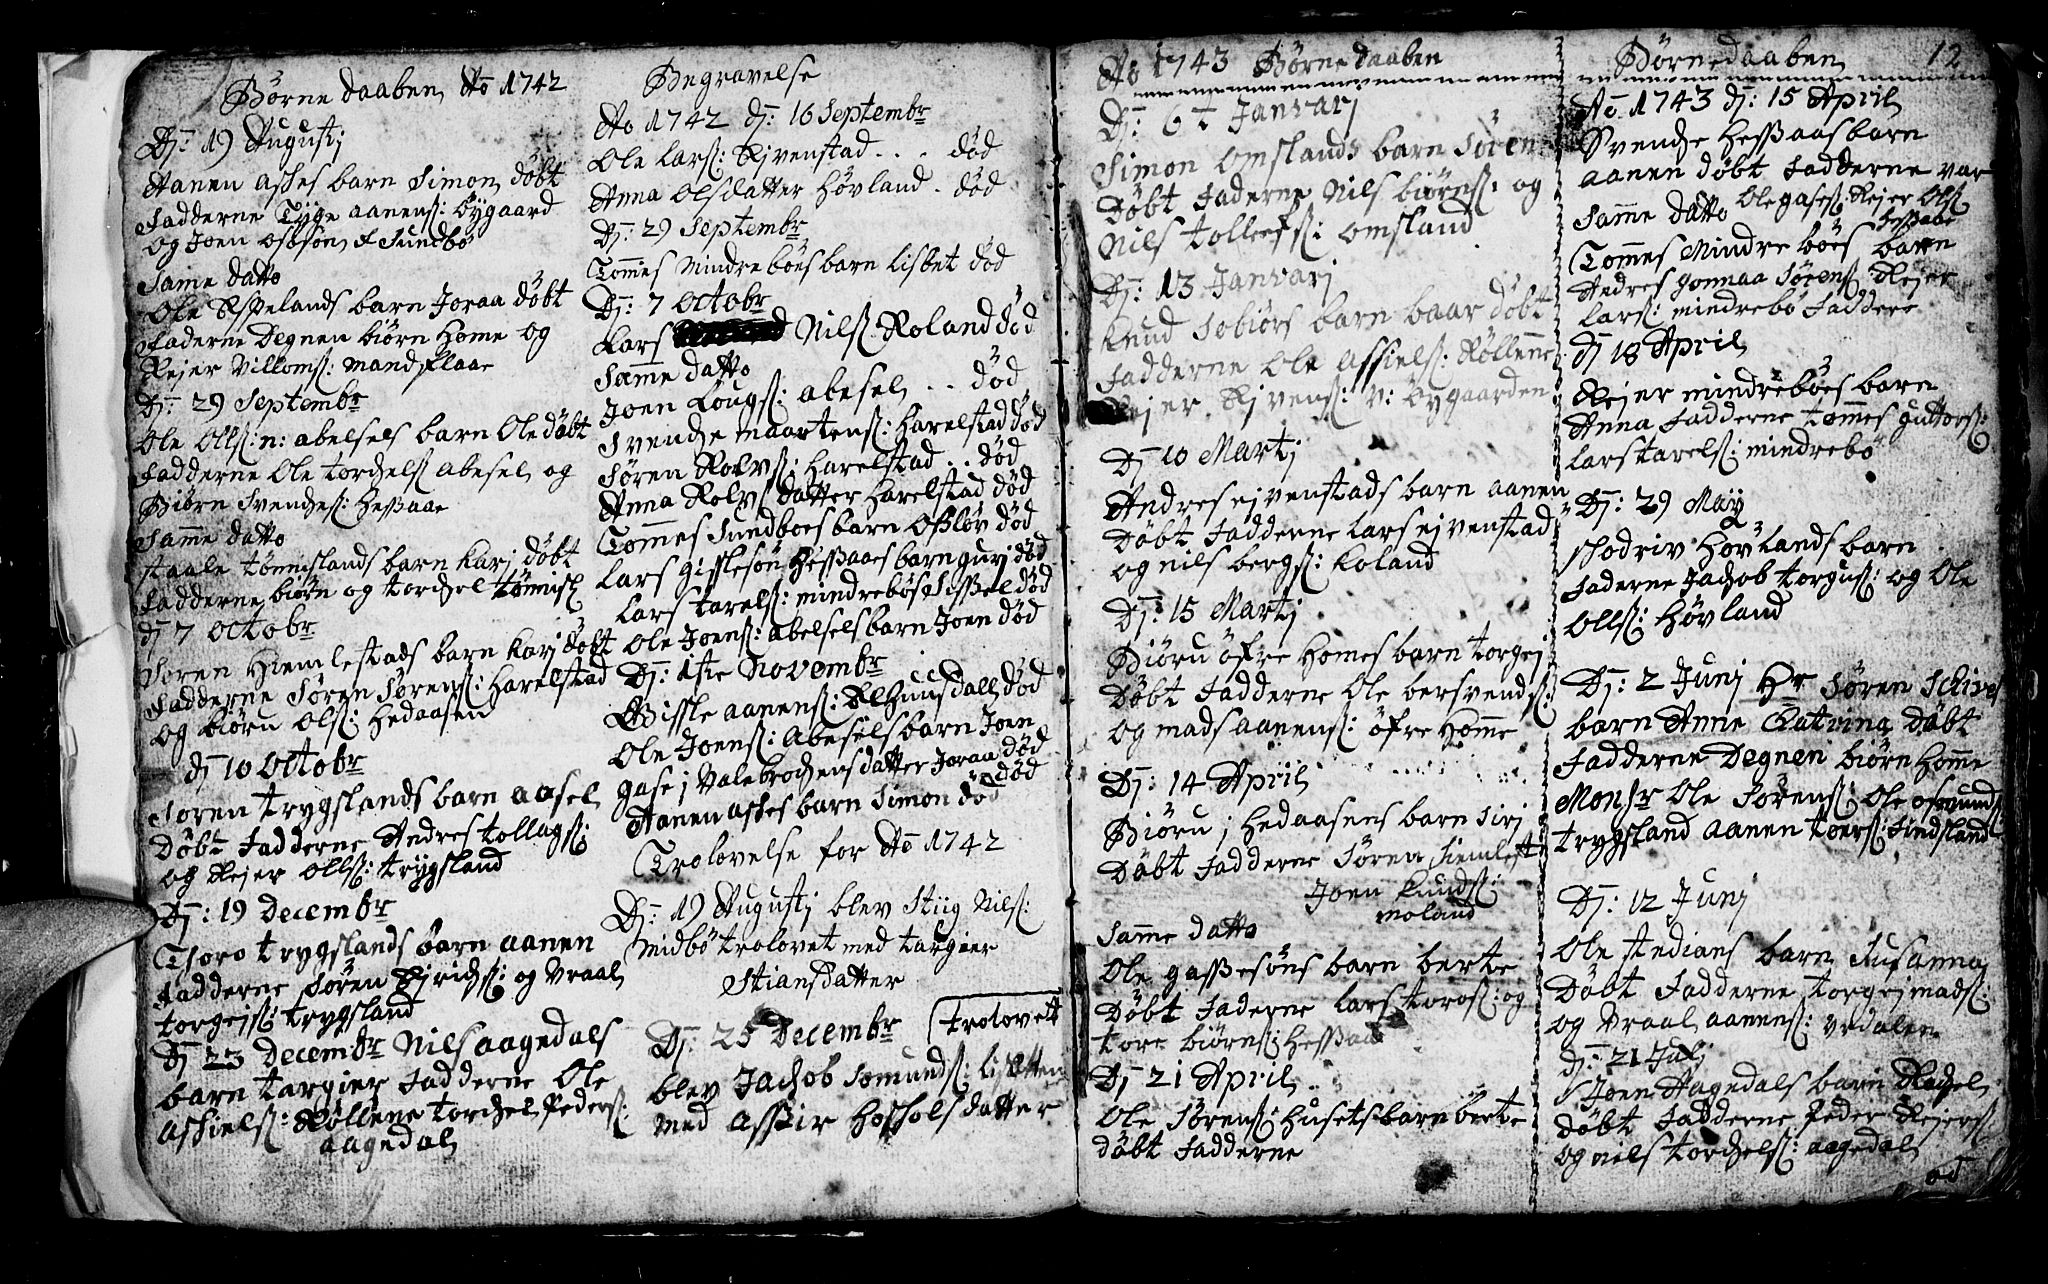 Börne daaben Ao 1742
Dj: 19 Augustj
Aanen askes barn Simon döbt
Fadderne Tÿge aanens: bÿgaard
og Joen osbsön Sundbö
Samme datto
Ole Espelands barn Joraa döbt
Faderne Degnen biörn Home og
Rejer Villoms: mandflaae
Dj: 29 Septembr
Ole Olls: n: abelsels barn Ole döbt
Fadderne Ole torchels abesel og
Biörn Svenches: Heßaae
Samme datto
staale tönnislands barn karj döbt
Fadderne biörn og torchel tönnisl
dj 7 Octobr
Sören Hiemlestads barn karj döbt
Fadderne Sören Sörens: Harelstad
og biörn Ols: Hedaasen
dj 10 Octobr
Sören trygslands barn aasel
döbt Fadderne Andres tollags:
og Rejer Olls: trygsland
Dj: 19 Decembr
Thoro trygslands barn aanen
Fadderne Sören Ejrichs: og Vraal
torgejs: trygsland
Dj 23 Decembr Nils aagedals
barn targier Fadderne Ole
askiels: Röllene torchel Peders:
aagedal
Begravelse
Ao 1742 dj: 16 Septembr
Ole Lars: Ejvenstad . . . död
Anna Olsdatter Hövland . död
Dj: 29 Septembr
Tommes Mindreböes barn Lisbet död
Dj: 7 Octobr
Lars Nils: Roland död
Samme datto
Joen Lougs: abesel . . död
Svenche maartens: Harelstad död
Sören Rolvs: Harelstad . . död
Anna Rolvsdatter Harelstad död
Tommes Sundboes barn Oßlöv död
Lars gisslesön Heßaaes barn gurj död
Lars tarels: mindrebös Sißel död
Ole Joens: abelsels barn Joen död
Dj: 1ste Novembr
Gissle aanens: Elhunsdall död
Ole Joens: Abesels barn Joen
gasej Valebrochens datter Joraa död
Aanen askes barn Simon död
Trolovelse for Ao 1742
Dj: 19 Augustj blev Stiig Nils:
midbö trolovet med targier
Stiansdatter
Dj: 25 Decembr trolovett
blev Jachob Somunds:
med Aßkir datter
Ao 1743 Börne daaben
Dj: 6t Janvarj
Simon Omslands barn Sören
Döbt Faderne Nils biörns: og
Nils tolleefs: omsland
Dj: 13 Janvarj
knud Sobiörs barn baar döbt
Fadderne Ole Assiels: Röllenne
Rejer Ejvens: V: bÿgaarden
Dj 10 Martj
Andres ejvenstads barn aanen
Döbt Fadderne Lars ejvenstad
og nils bergs: koland
Dj: 15 Martj
Biörn öfre Homes barn torgej
Döbt Fadderne Ole bersvends:
og mads aanens: öfre Homme
Dj: 14 April
Biörn j Hedaasens barn Sirj
Döbt Fadderne Sören Hiemlest
Joen knuds:
moland
Samme datto
Ole gaßesöns barn berte
Döbt Faderne Lars toros: og
tore biörns: Heßaae
Dj 21 April
Ole Sörens: Husets barn berte
döbt Fadderne
Börnedaaben 12
Ao 1743 dj: 15 April
Svenche Heßaas barn
aanen döbt Fadderne var
Ole gases: Rejer Ols:
Heßaae
Samme datto
Tommes Mindreböes barn
Andres gonnaa Sörens: Rejer
Lars: mindrebö Faddere
dj 18 April
Rejer mindreböes barn
Anna Fadderne tommes guttors:
Lars tarels: mindrebö
Dj: 29 Maÿ
Hövlands barn
Faderne Jachob torgus: og Ole
Olls: Hövland
Dj: 2 Junj Hr Sören Schives
barn Anne Catrina döbt
Fadderne Degnen biörn Homme
Monsr Ole Sörens: Ole osmunds
trygsland aanen toers: Findsland
Dj: 12 Junj
Ole stedians barn Susanna
Döbt Fadderne torgej mads:
og Vraal aanens: Urdalen
dj: 21 Julj
Joen Aagedals barn Rachel
döbt Fadderne Peder Rejers:
og nils torchels: aagedal